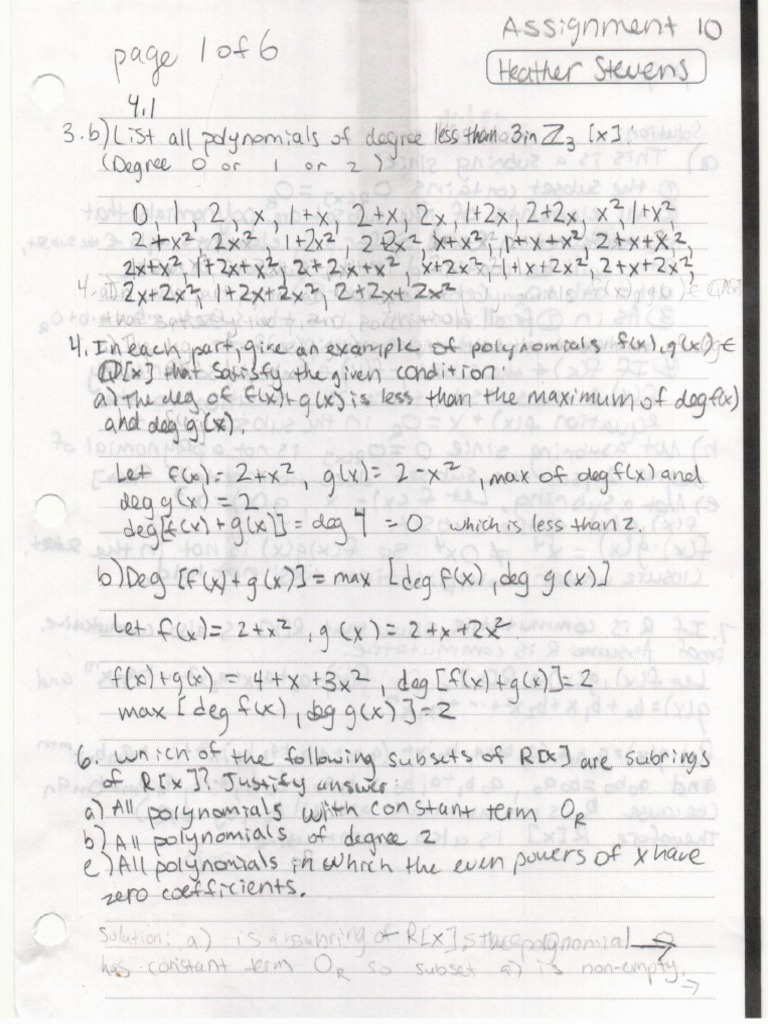 Assignment 10
page 1 of 6
Heather Stevens
4.1
3. b) List all polynomials of degree less than 3 in ℤ₃ [x]:
(Degree 0 or 1 or 2)
0, 1, 2, x, 1+x, 2+x, 2x, 1+2x, 2+2x, x² 1+x²,
2+x², 2x², 1+2x², 2+2x² x+x², 1+x+x², 2+x+x²,
2x+x², 1+2x+x², 2+2x+x², x+2x², 1+x+2x², 2+x+2x²,
2x+2x², 1+2x+2x², 2+2x+2x²
4. In each part, give an example of polynomials f(x), g(x) ∈
ℚ[x] that satisfy the given condition:
a) The deg of f(x)+g(x) is less than the maximum of deg f(x)
and deg g(x).
Let f(x) = 2+x², g(x) = 2-x², max of deg f(x) and
deg g(x) = 2
deg[f(x) + g(x)] = deg 4 = 0 which is less than 2.
b) Deg [f(x)+g(x)] = max [deg f(x), deg g(x)]
Let f(x) = 2+x², g(x) = 2+x+2x²
f(x)+g(x) = 4+x+3x², deg[f(x)+g(x)]=2
max [deg f(x), deg g(x)]=2
6. Which of the following subsets of R[x] are subrings
of R[x]? Justify answer:
a) All polynomials with constant term 0_R
b) All polynomials of degree 2
e) All polynomials in which the even powers of x have
zero coefficients.
Solution: a) is a subring of R[x], the polynomial 0 →
has constant term 0_R so subset a) is non-empty. →